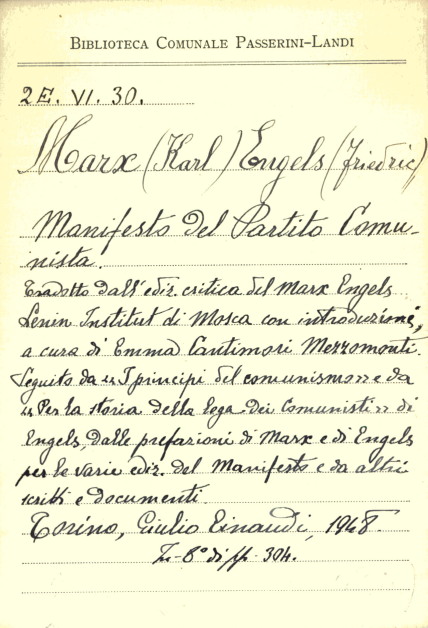 BIBLIOTECA COMUNALE PASSERINI-LANDI
2E. VI. 30.
Marx (Karl) Engels (Friedric)
Manifesto del Partito Comu-
nista.
Tradotto dall'ediz. critica del Marx Engels
Lenin Institut di Mosca con introduzione,
a cura di Emma Cantimori Mezzomonti.
Seguito da «I principi del comunismo» e da
«Per la storia della lega dei Comunisti» di
Engels, dalle prefazioni di Marx e di Engels
per le varie ediz. del Manifesto e da altri
scritti e documenti.
Torino, Giulio Einaudi, 1948.
8° di pp. 304.